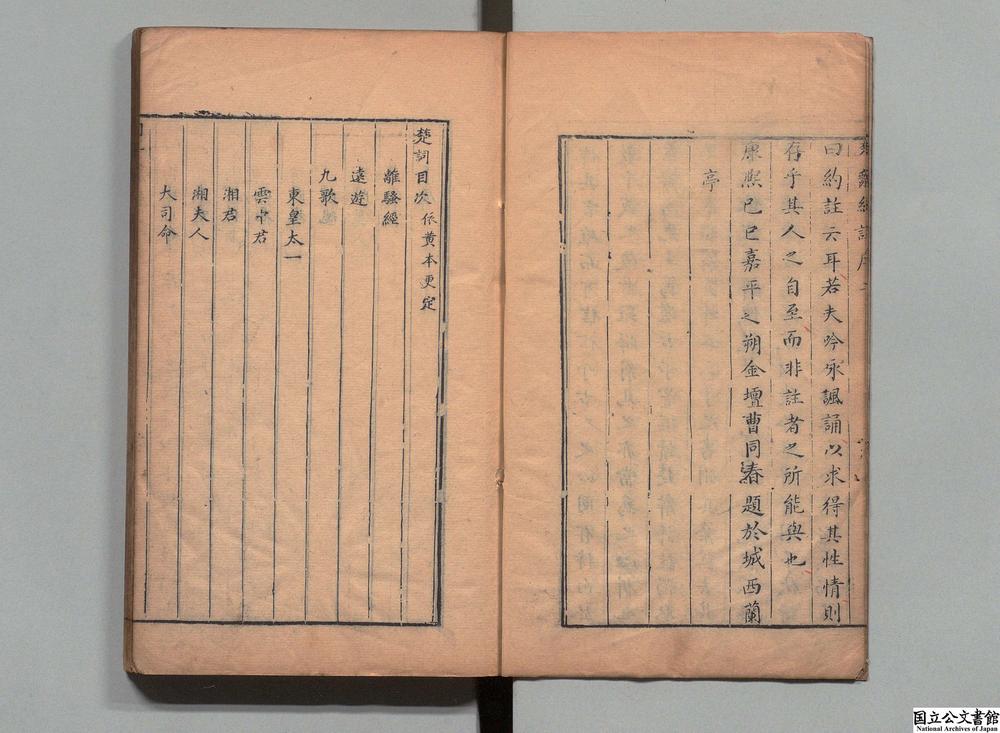 曰約註云耳若夫吟永諷誦以求得其性情則
存乎其人之自至而非註者之所能與也
康熙己巳嘉平之朔金壇曹同春題於城西蘭
亭
楚詞目次依黃本更定
離騷經
遠遊
九歌
東皇太一
雲中君
湘君
湘夫人
大司命
国立公文書館
National Archives of Japan